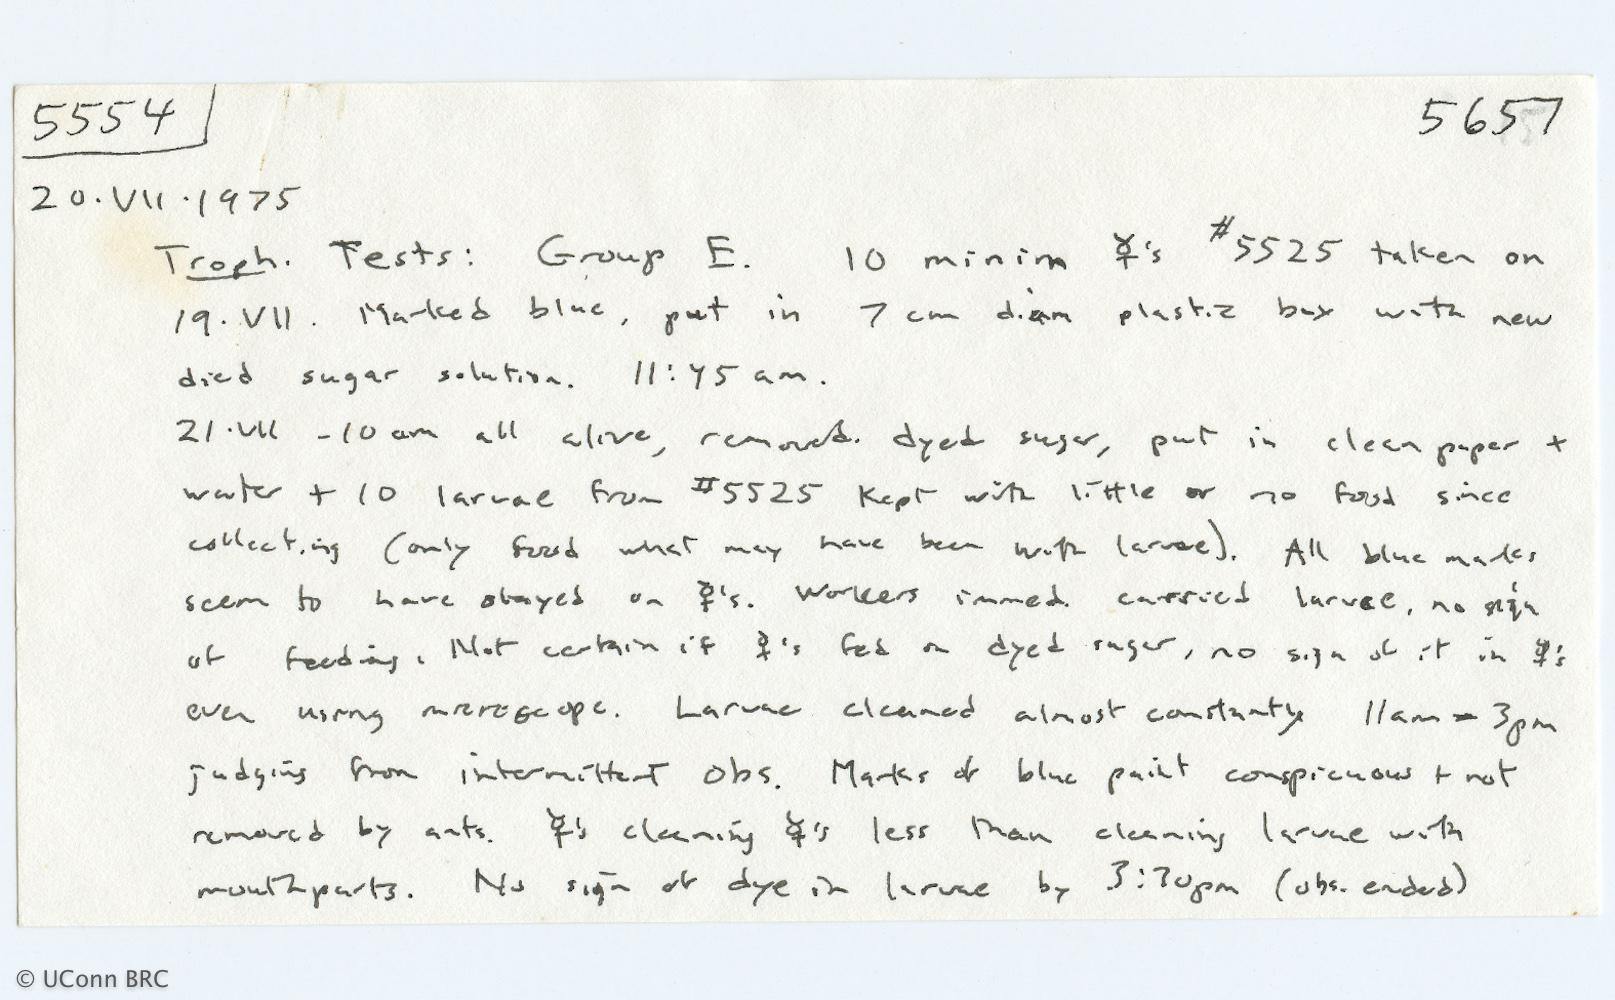 5554 5657
20.VII.1975
Troph. Tests: Group E. 10 minim ☿'s #5525 taken on
19.VII. Marked blue, put in 7 cm diam plastic box with new
died sugar solution. 11:45 am.
21.VII - 10 am all alive, removed. dyed sugar, put in clean paper +
water + 10 larvae from #5525 kept with little or no food since
collecting (only food what may have been with larvae). All blue marks
seem to have stayed on ☿'s. Workers immed. carried larvae, no sign
of feeding. Not certain if ☿'s fed on dyed sugar, no sign of it in ☿'s
even using microscope. Larvae cleaned almost constantly 11am - 3pm
judging from intermittent obs. Marks of blue paint conspicuous + not
removed by ants. ☿'s cleaning ☿'s less than cleaning larvae with
mouthparts. No sign of dye in larvae by 3:30pm (obs. ended)
© UConn BRC